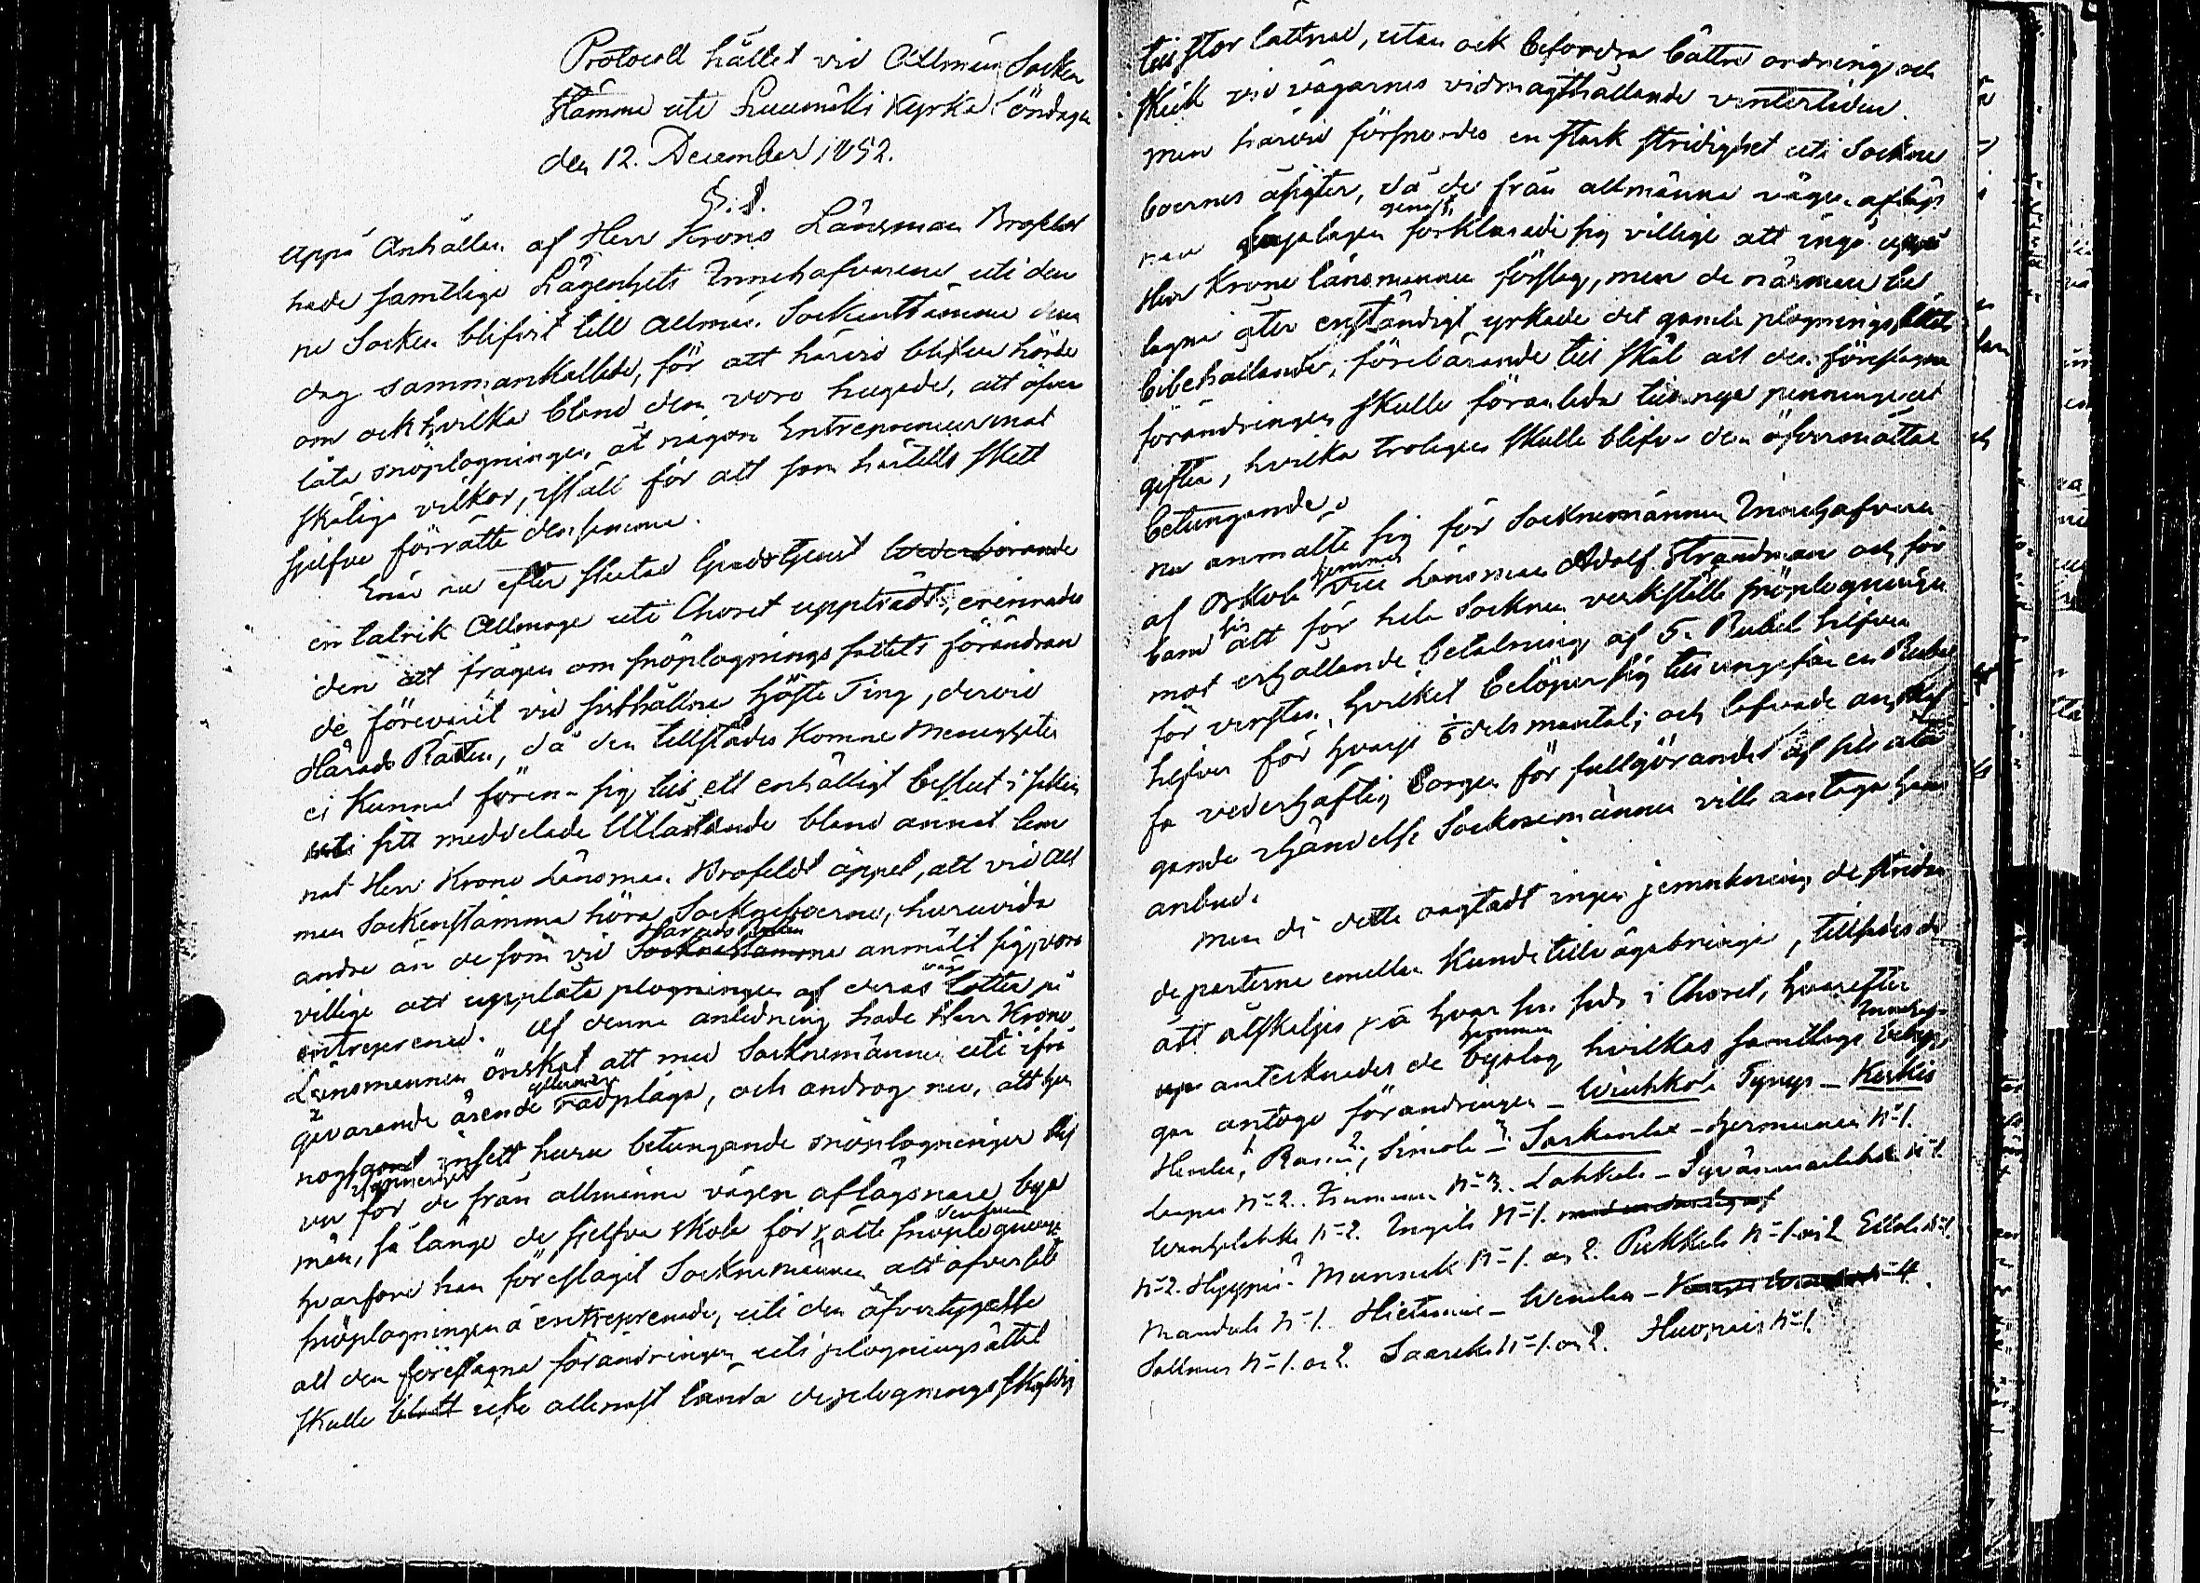 Protocoll hållet vid Allmän Socken
stämma uti Luumäki Kyrka Söndagen
den 12. December 1852.
§. 1.
Uppå Anhållan af Herr Krono Länsman Brofeldt
hade samtlige Lägenhets Innehafvarene uti den
ne Socken blifvit till allmän Sockenstämma denna
dag sammankallade, för att härvid blifva hörde
om och hvilka bland dem voro hugade, att öfver
låta snöplogningen åt någon Entrepreneur mot
skäliga vilkor, istället för att som härtills skett
sjelfve förrätta densamma.
Enär nu efter slutad Gudstjenst vederbörande
en talrik Allmoge uti Choret uppträdt, erinrades
den att frågan om snöplognings sättets förändran
de förevarit vid sisthållne Höste Ting, dervid
Härads Rätten, då den tillstädes komne Menigheten
ej kunnat förena sig till ett enhälligt beslut i saken
uti sitt meddelade Utlåtande bland annat lem
nat Herr Krono Länsman Brofeldt öppet, att vid all
män Sockenstämma höra Socknéboerne, huruvida
andre än de som vid Härads Rätten Socknestämma anmält sig, voro
villige att upplåta plogningen af deras väge lotter på
entreprenad. Af denna anledning hade Herr Krono
Länsmannen önskat att med Socknemännen uti ifrå
gavarande ärende rådpläga, och androg nu, att han
nogsamt insett huru betungande snöplogningen blef
ve för de från allmänna vägen aflägsnare bya
män, så länge de sjelfve skola förrätta snöplogningen
hvarföre han föreslagit Socknemännen att öfverlåta
snöplogningen å entreprenad, uti den öfvertygelse
att den föreslagna förändringen uti plogningsättet
skulle blott icke allenast lända de plognings skyldig
till stor lättnad, utan ock befordra bättre ordning och
skick vid vägarnes vidmagthållande vintertiden.
Men härvid förspordes en stark stridighet uti Sockne
boernes åsigter, då de från allmänna vägen aflägs
nare byalagen genast förklarade sig villige att ingå uppå
Herr Krono länsmannens förslag, men de närmare be
lägna åter enständigt yrkade det gamla plognings sättets
bibehållande, förebärande till skäl att den föreslagna
förändringen skulle föranleda till nya penningeut
gifter, hvilka troligen skulle blifva dem öfvermåttan
betungande.
Nu anmälte sig för Socknemännen Innehafvaren
af Orkola hemman Vice Länsman Adolf Strandman och för
band sig att för hela Socknen verkställa snöplogningen
mot erhållande betalning af 5. Rubel silfver
för versten, hvilket belöper sig till ungefär en Rubel
silfver för hvarje 1/6 dels mantal; och lofvade anskaf
fa vederhäftig borgen för fullgörandet af sin åta
gande i händelse Socknemännen ville antaga hans
anbud.
Men då detta oagtadt ingen jemnkning de stridan
de parterne emellan kunde tillvägabringas, tillsades de
att åtskiljas på hvar sin sida i Choret, hvarefter
antecknades de byalag hemman hvilkas samtlige Innehaf
gar antogo förändringen – Wiuhkola Tynys – Keskis
Heulu, Rasu 2, Simola 3. Sarkanlax – Hermunen N=1.
N=2. N=3. Lahkola – Syvänmaalahti N=1.
N=2. Ingilä N=1. med undantag af
N=2. Hyyppiä – Munnuk N=1. o 2. Pukkala N=1 o 2 N=1.
Mandula N=1. Hietamie – – N=4.
N=1. o 2. N=1. o 2. Huopain N=1.